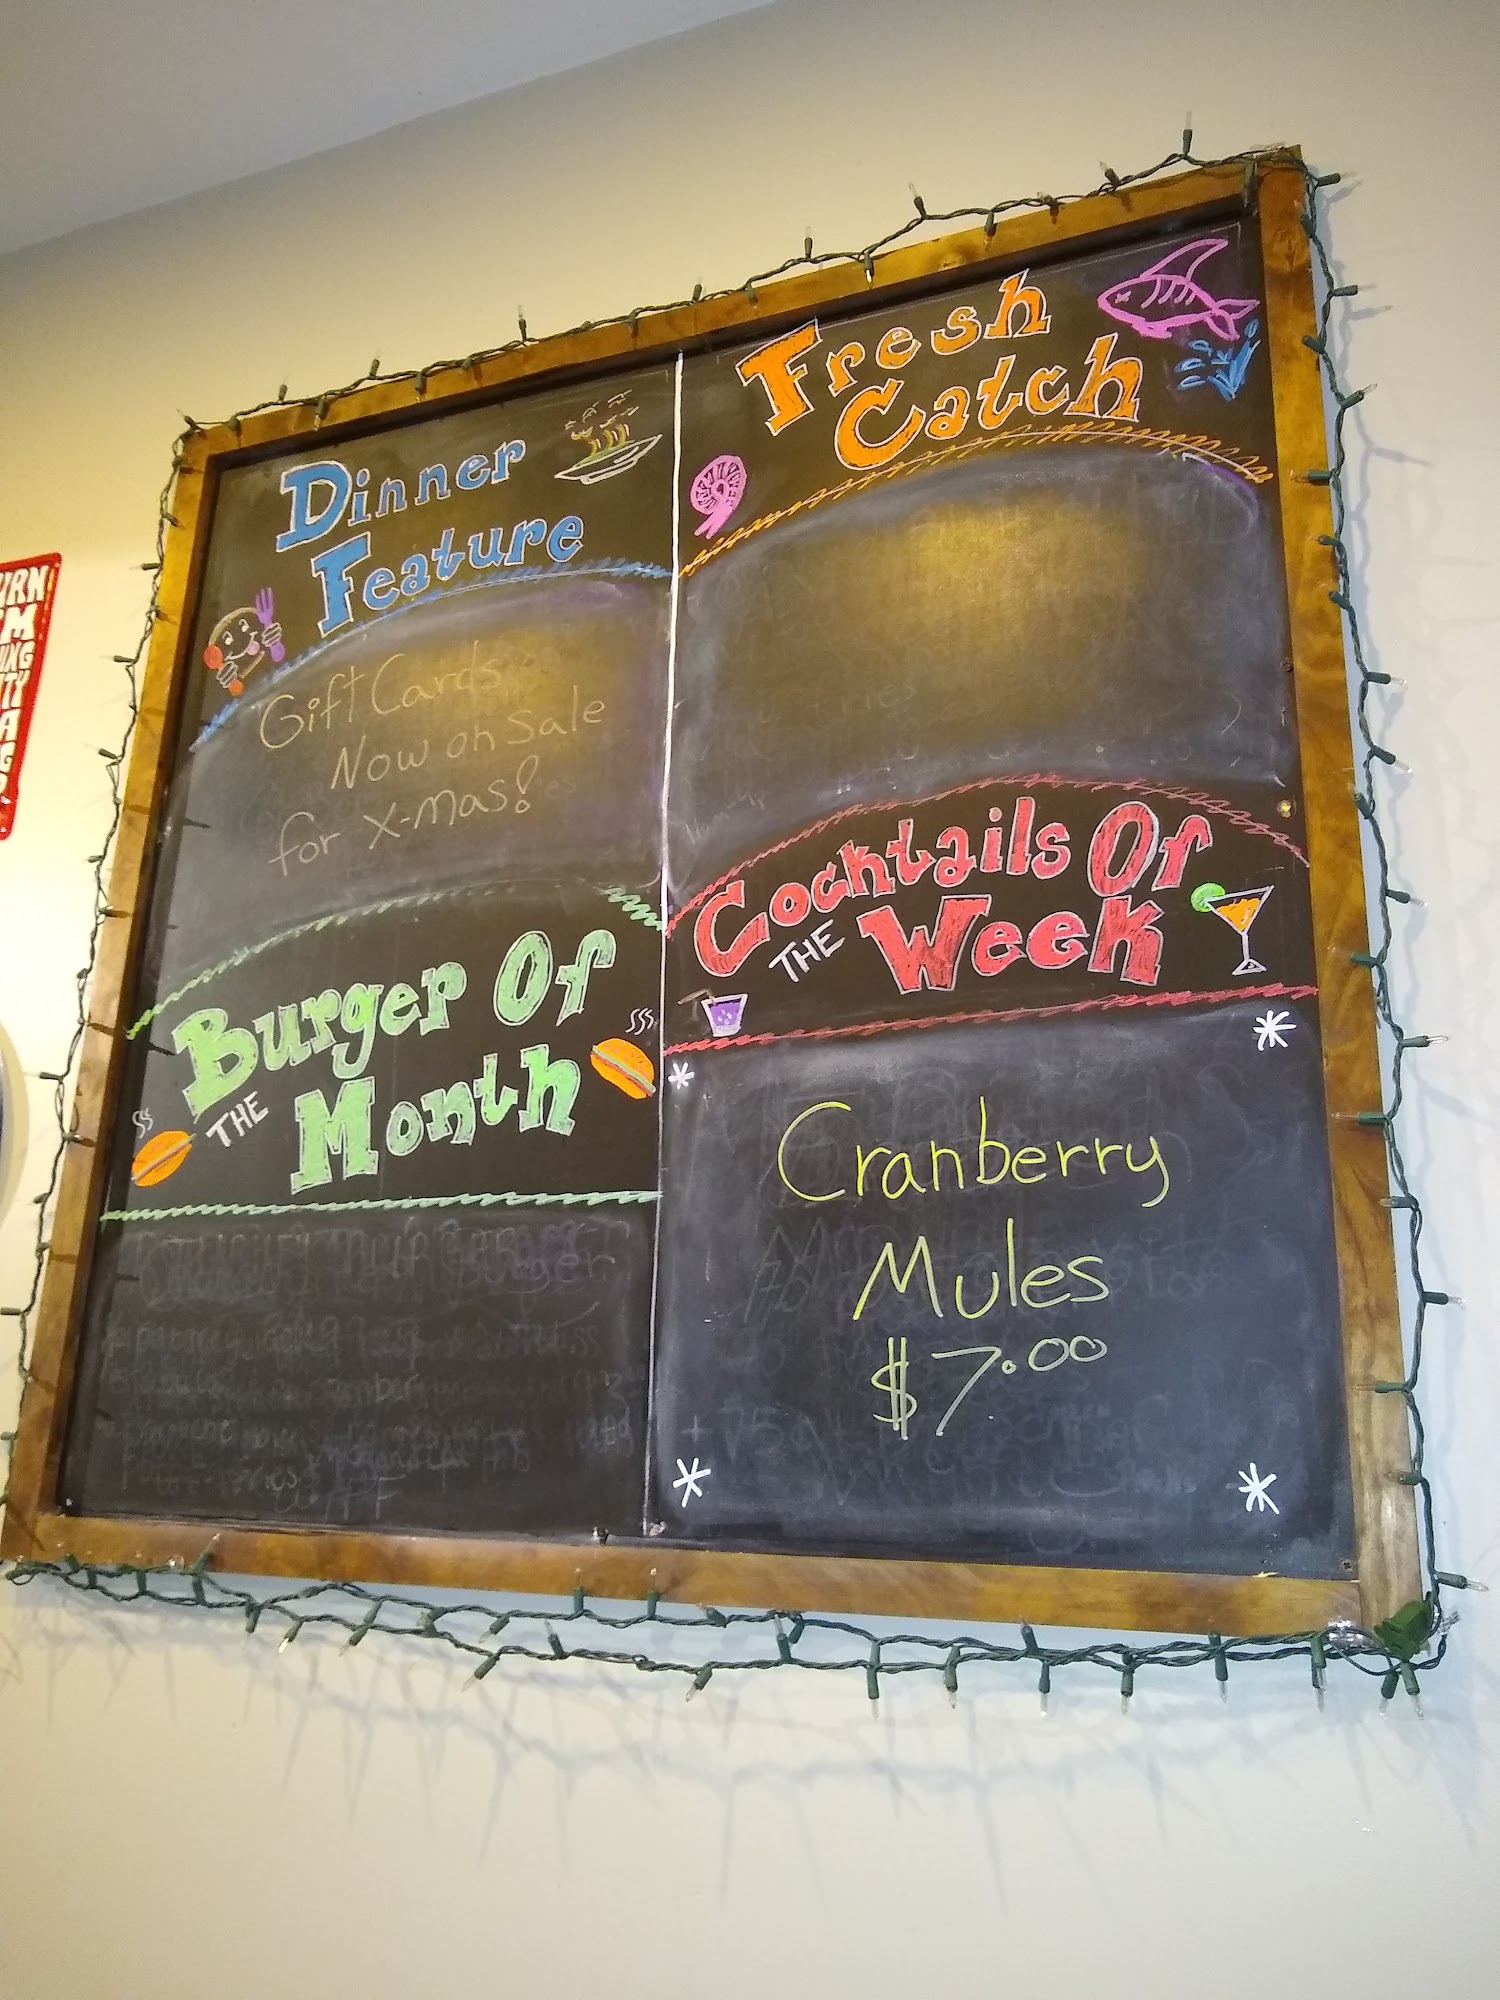 Dinner
Feature
Gift Cards
Now on Sale
for X-mas!
Burger Of
THE
Month
Fresh
Catch
Cocktails Of
THE Week
Cranberry
Mules
$7.00